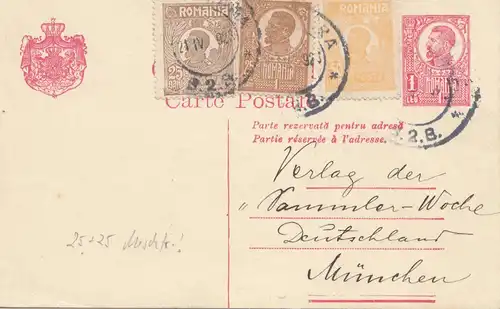 ROMANIA
ROMANIA
25
BANI
1
LEU
1
LEU
ARA *
21 IV
* 3.2.B. *
3.2.B.
Carte Postală
Parte rezervată pentru adresă
Partie réservée à l'adresse.
Verlag der
"Sammler-Woche
Deutschland
München
25 + 25